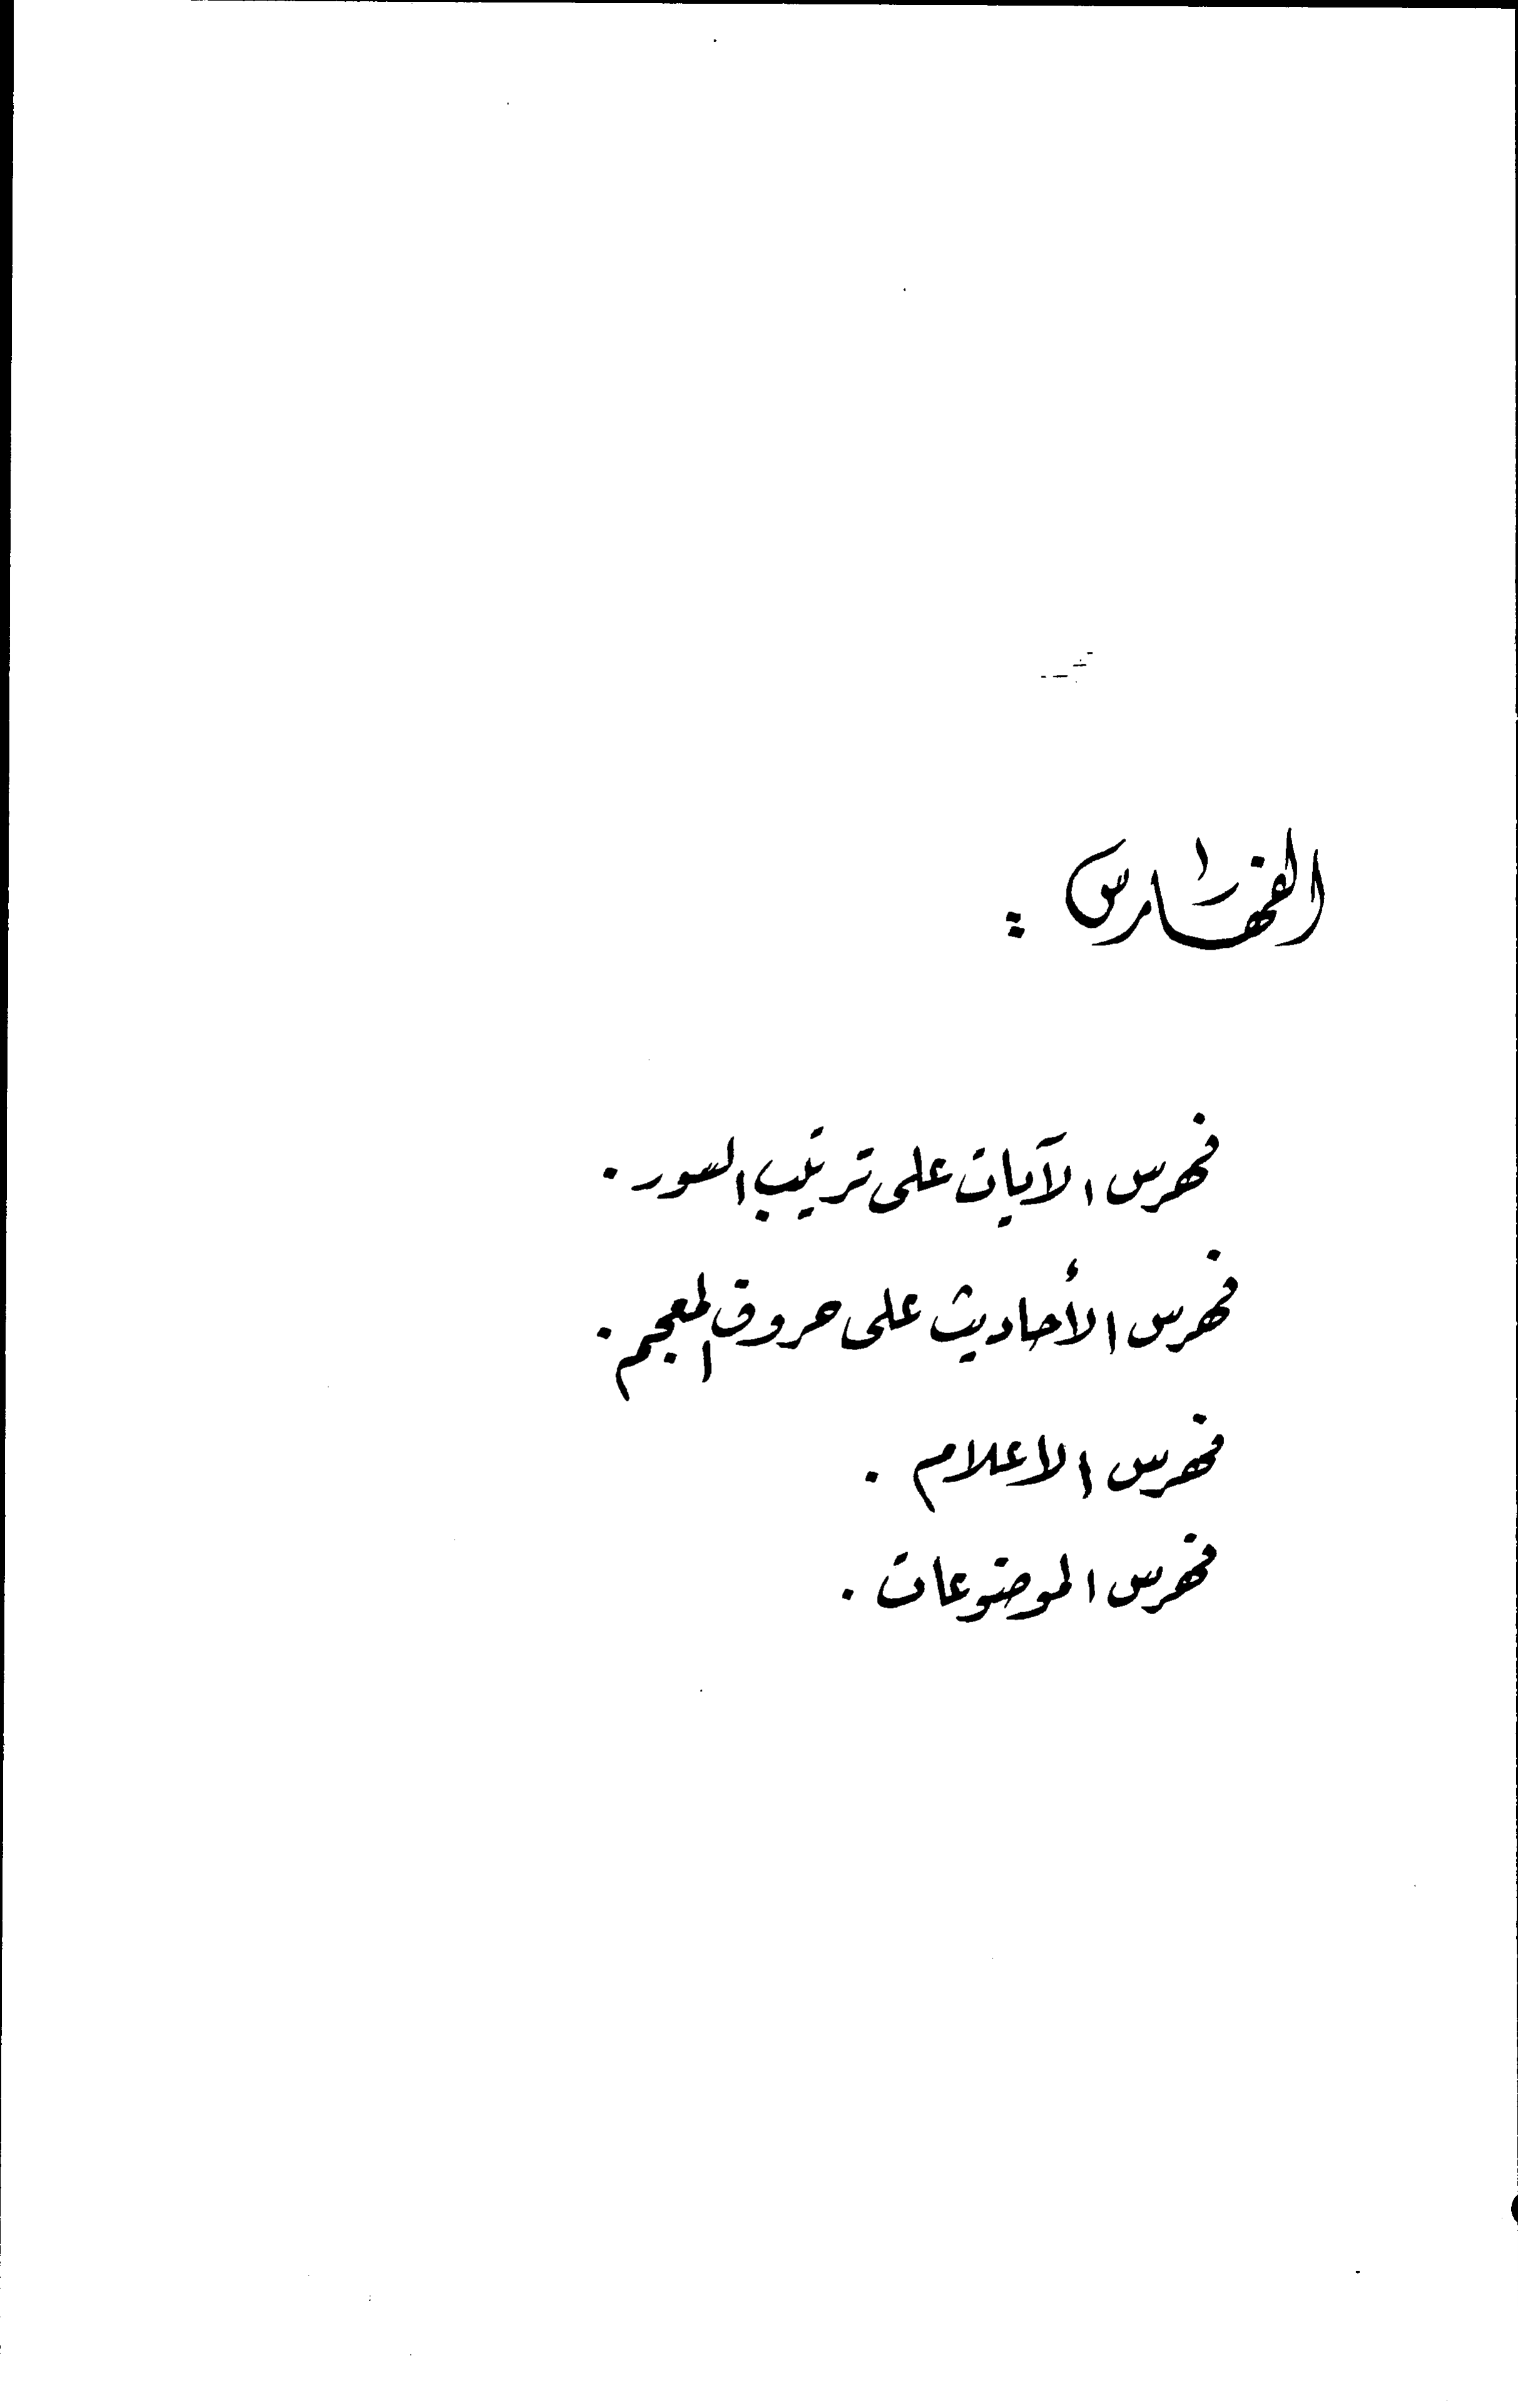 الفهارس :
فهرس الآيات على ترتيب السور .
فهرس الأحاديث على حروف المعجم .
فهرس الاعلام .
فهرس الموضوعات .